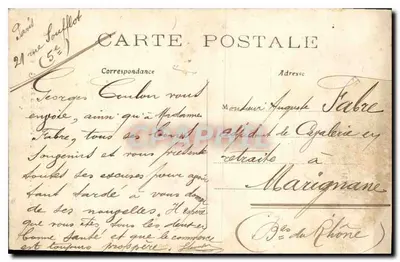 Paris
21 rue Soufflot
(5e)
CARTE POSTALE
Correspondance
Adresse
Georges Coulon vous
envoie, ainsi qu'à Madame
Fabre, tous ses bons
souvenirs et vous présente
toutes ses excuses pour avoir
tant tardé à vous donner
de ses nouvelles. Il espère
que vous êtes tous les deux en
bonne santé et que le commerce
est toujours prospère.
Monsieur Auguste Fabre
de Cavalerie en
retraite à
Marignane
(Bes du Rhône)